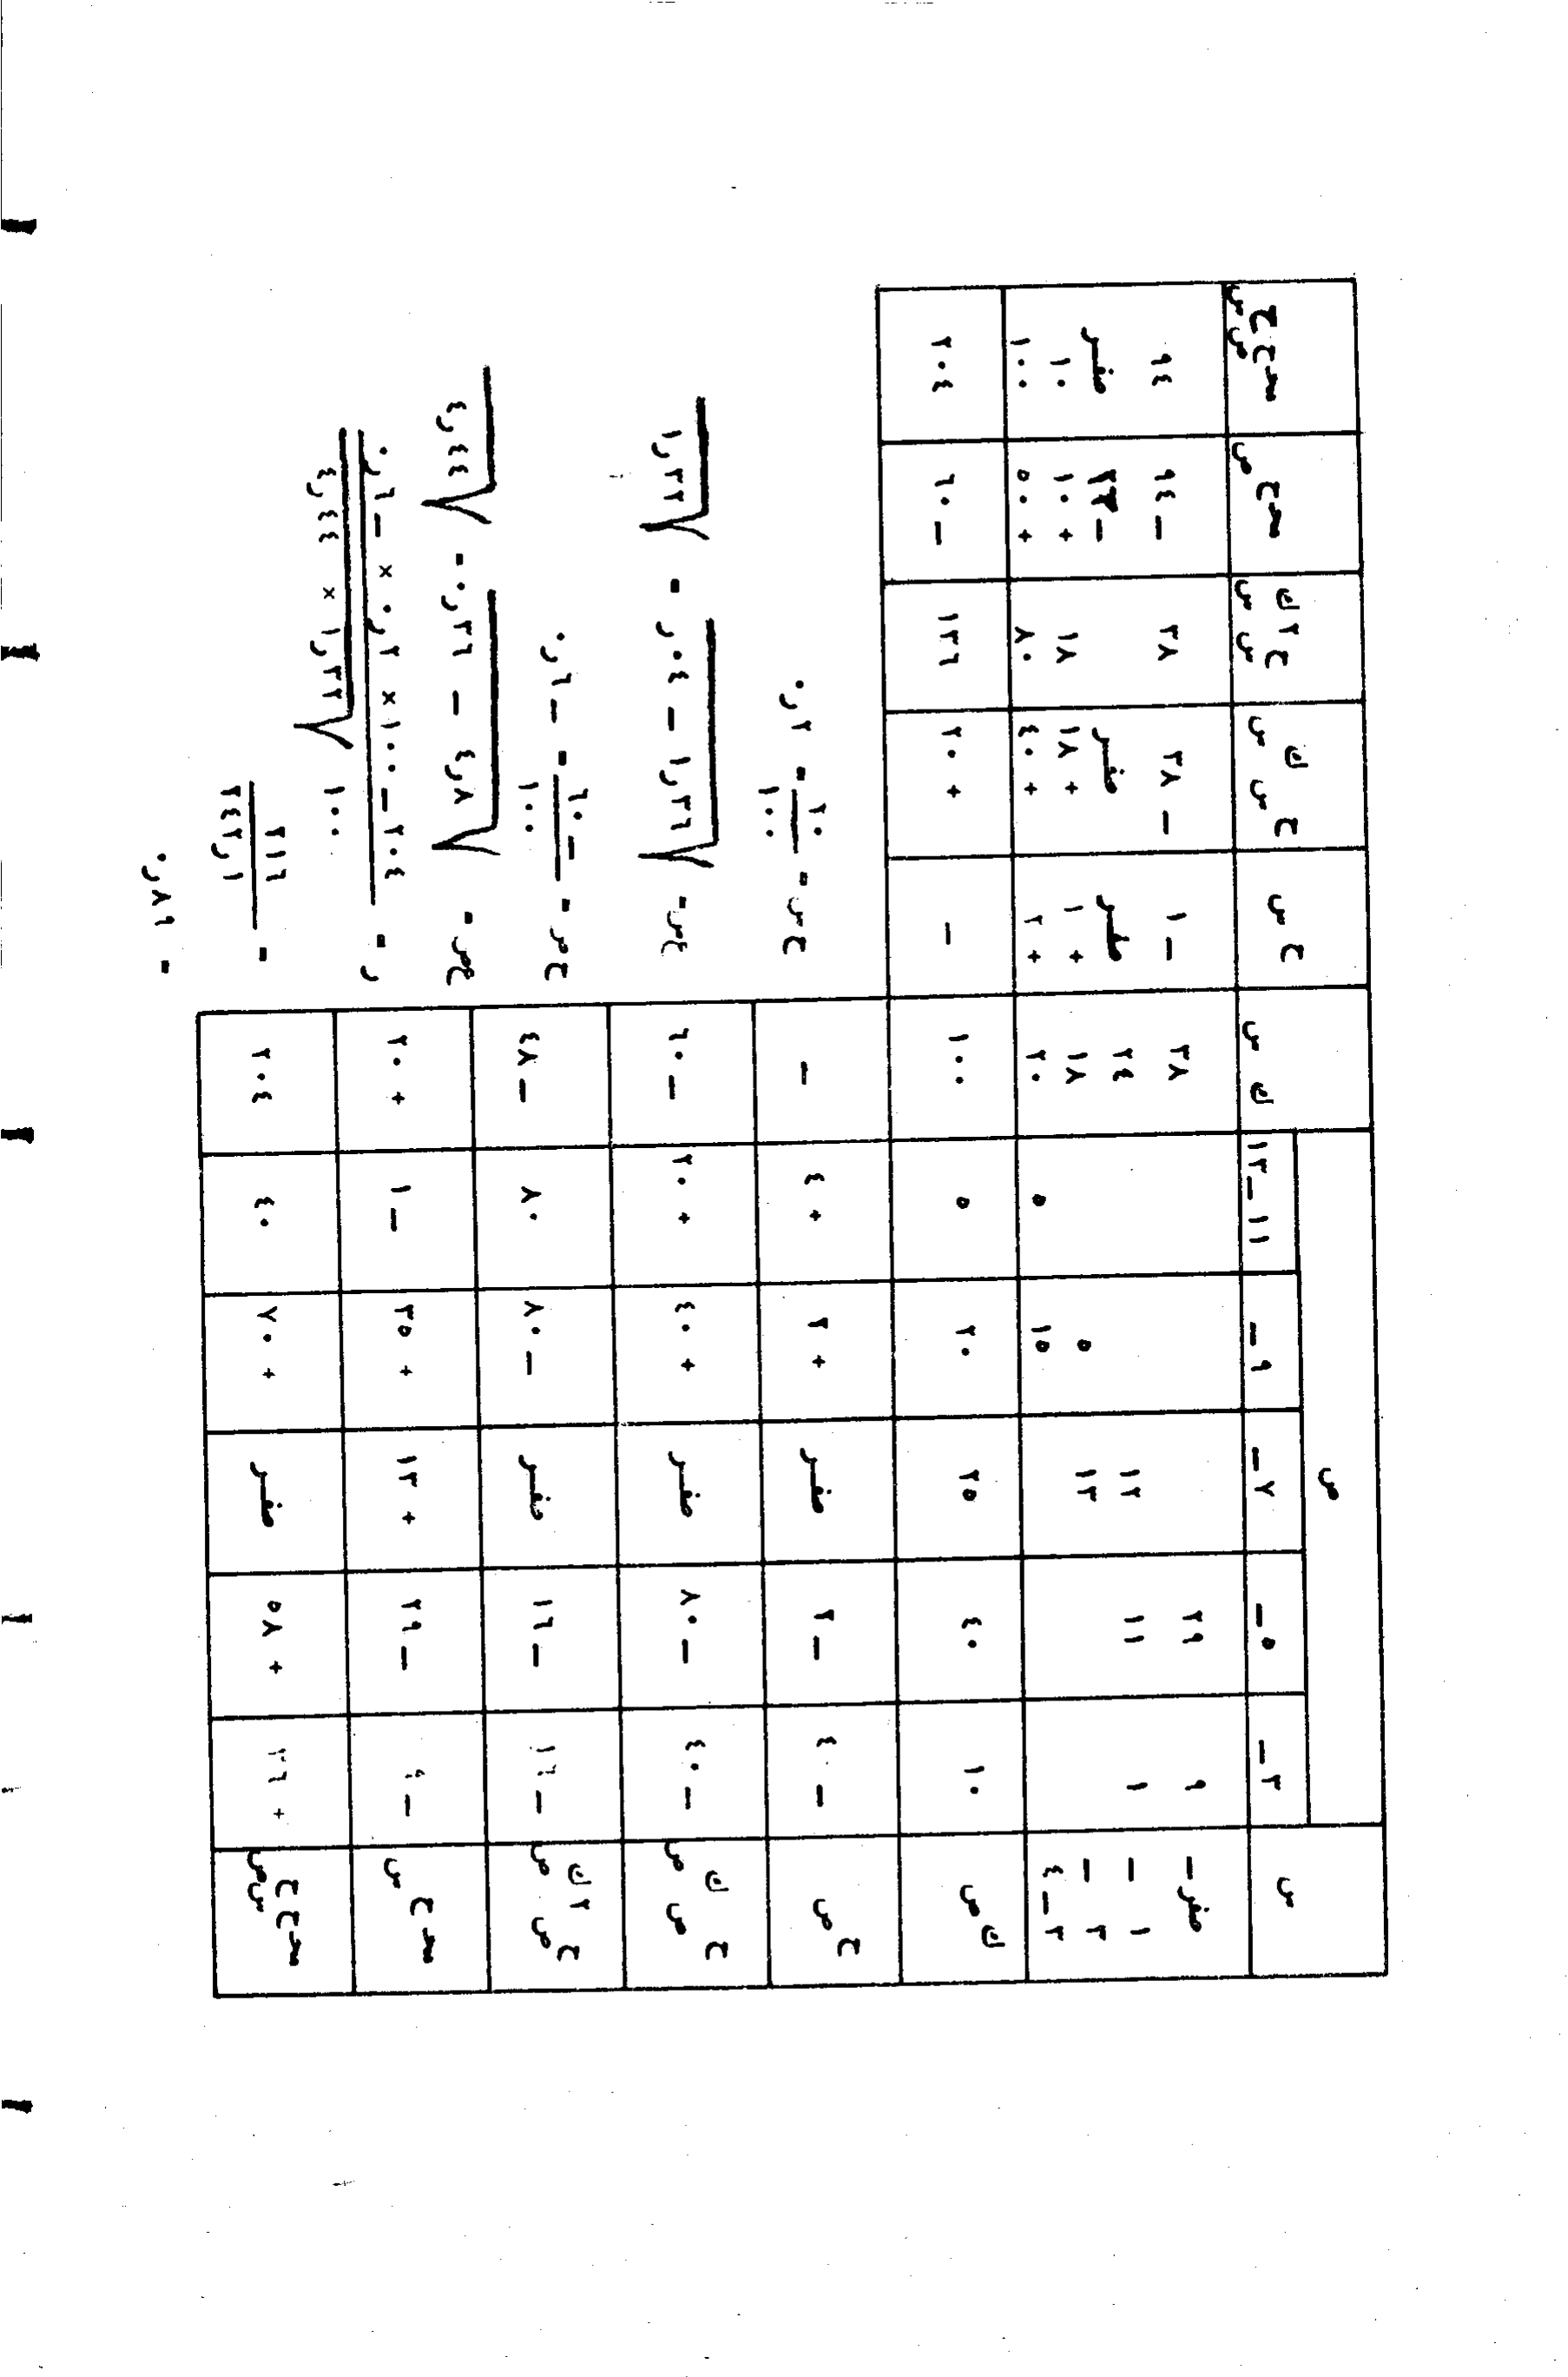 س ص ك س ح س ح س ك س ح٢ س ك س مجـ ح ص مجـ ح س ح ص
٣— ٥— ٧— ٩— ١١—١٣
صفر— ٩ ٢٩ ٣٨ —١ —٣٨ ٣٨ —٩٤ ٩٤
١— ١ ١١ ١٢ ٢٤ صفر صفر صفر
٢— ١٣ ٥ ١٨ +١ +١٨ ١٨ +١٠ ١٠
٣—٤ ١٥ ٥ ٢٠ +٢ +٤٠ ٨٠ +٥٠ ١٠٠
ك ص ١٠ ٤٠ ٢٥ ٢٠ ٥ ١٠٠ — +٢٠ ١٣٦ —٦٠ ٢٠٤
ح ص —٤ —٢ صفر +٢ +٤ —
ح ص ك ص —٤٠ —٨٠ صفر +٤٠ +٢٠ —٦٠
ح٢ ص ك ص —١٦ —١٦ صفر —٨٠ ٨٠ —٤٨
مجـ ح س —٩ —٢٩ +١٣ +٣٥ —١ +٢٠
مجـ ح س ح ص +٣٦ +٥٨ صفر +٧٠ ٤٠ ٢٠٤
ح س = ٢٠/١٠٠ = ٢ر٠
ع س = √١ر٣٦ — ٠٤ر = √١ر٣٢
ح ص = —٦٠/١٠٠ = —٦ر٠
ع ص = √٤ر٨ — ٣٦ر٠ = √٤ر٤٤
ر = ٢٠٤ — ١٠٠ × ٢ر٠ × —٦ر٠
١٠٠ √١ر٣٢ × ٤ر٤٤
= ٢١٦ / ٢٤٢ر١
= ٨٩ر٠